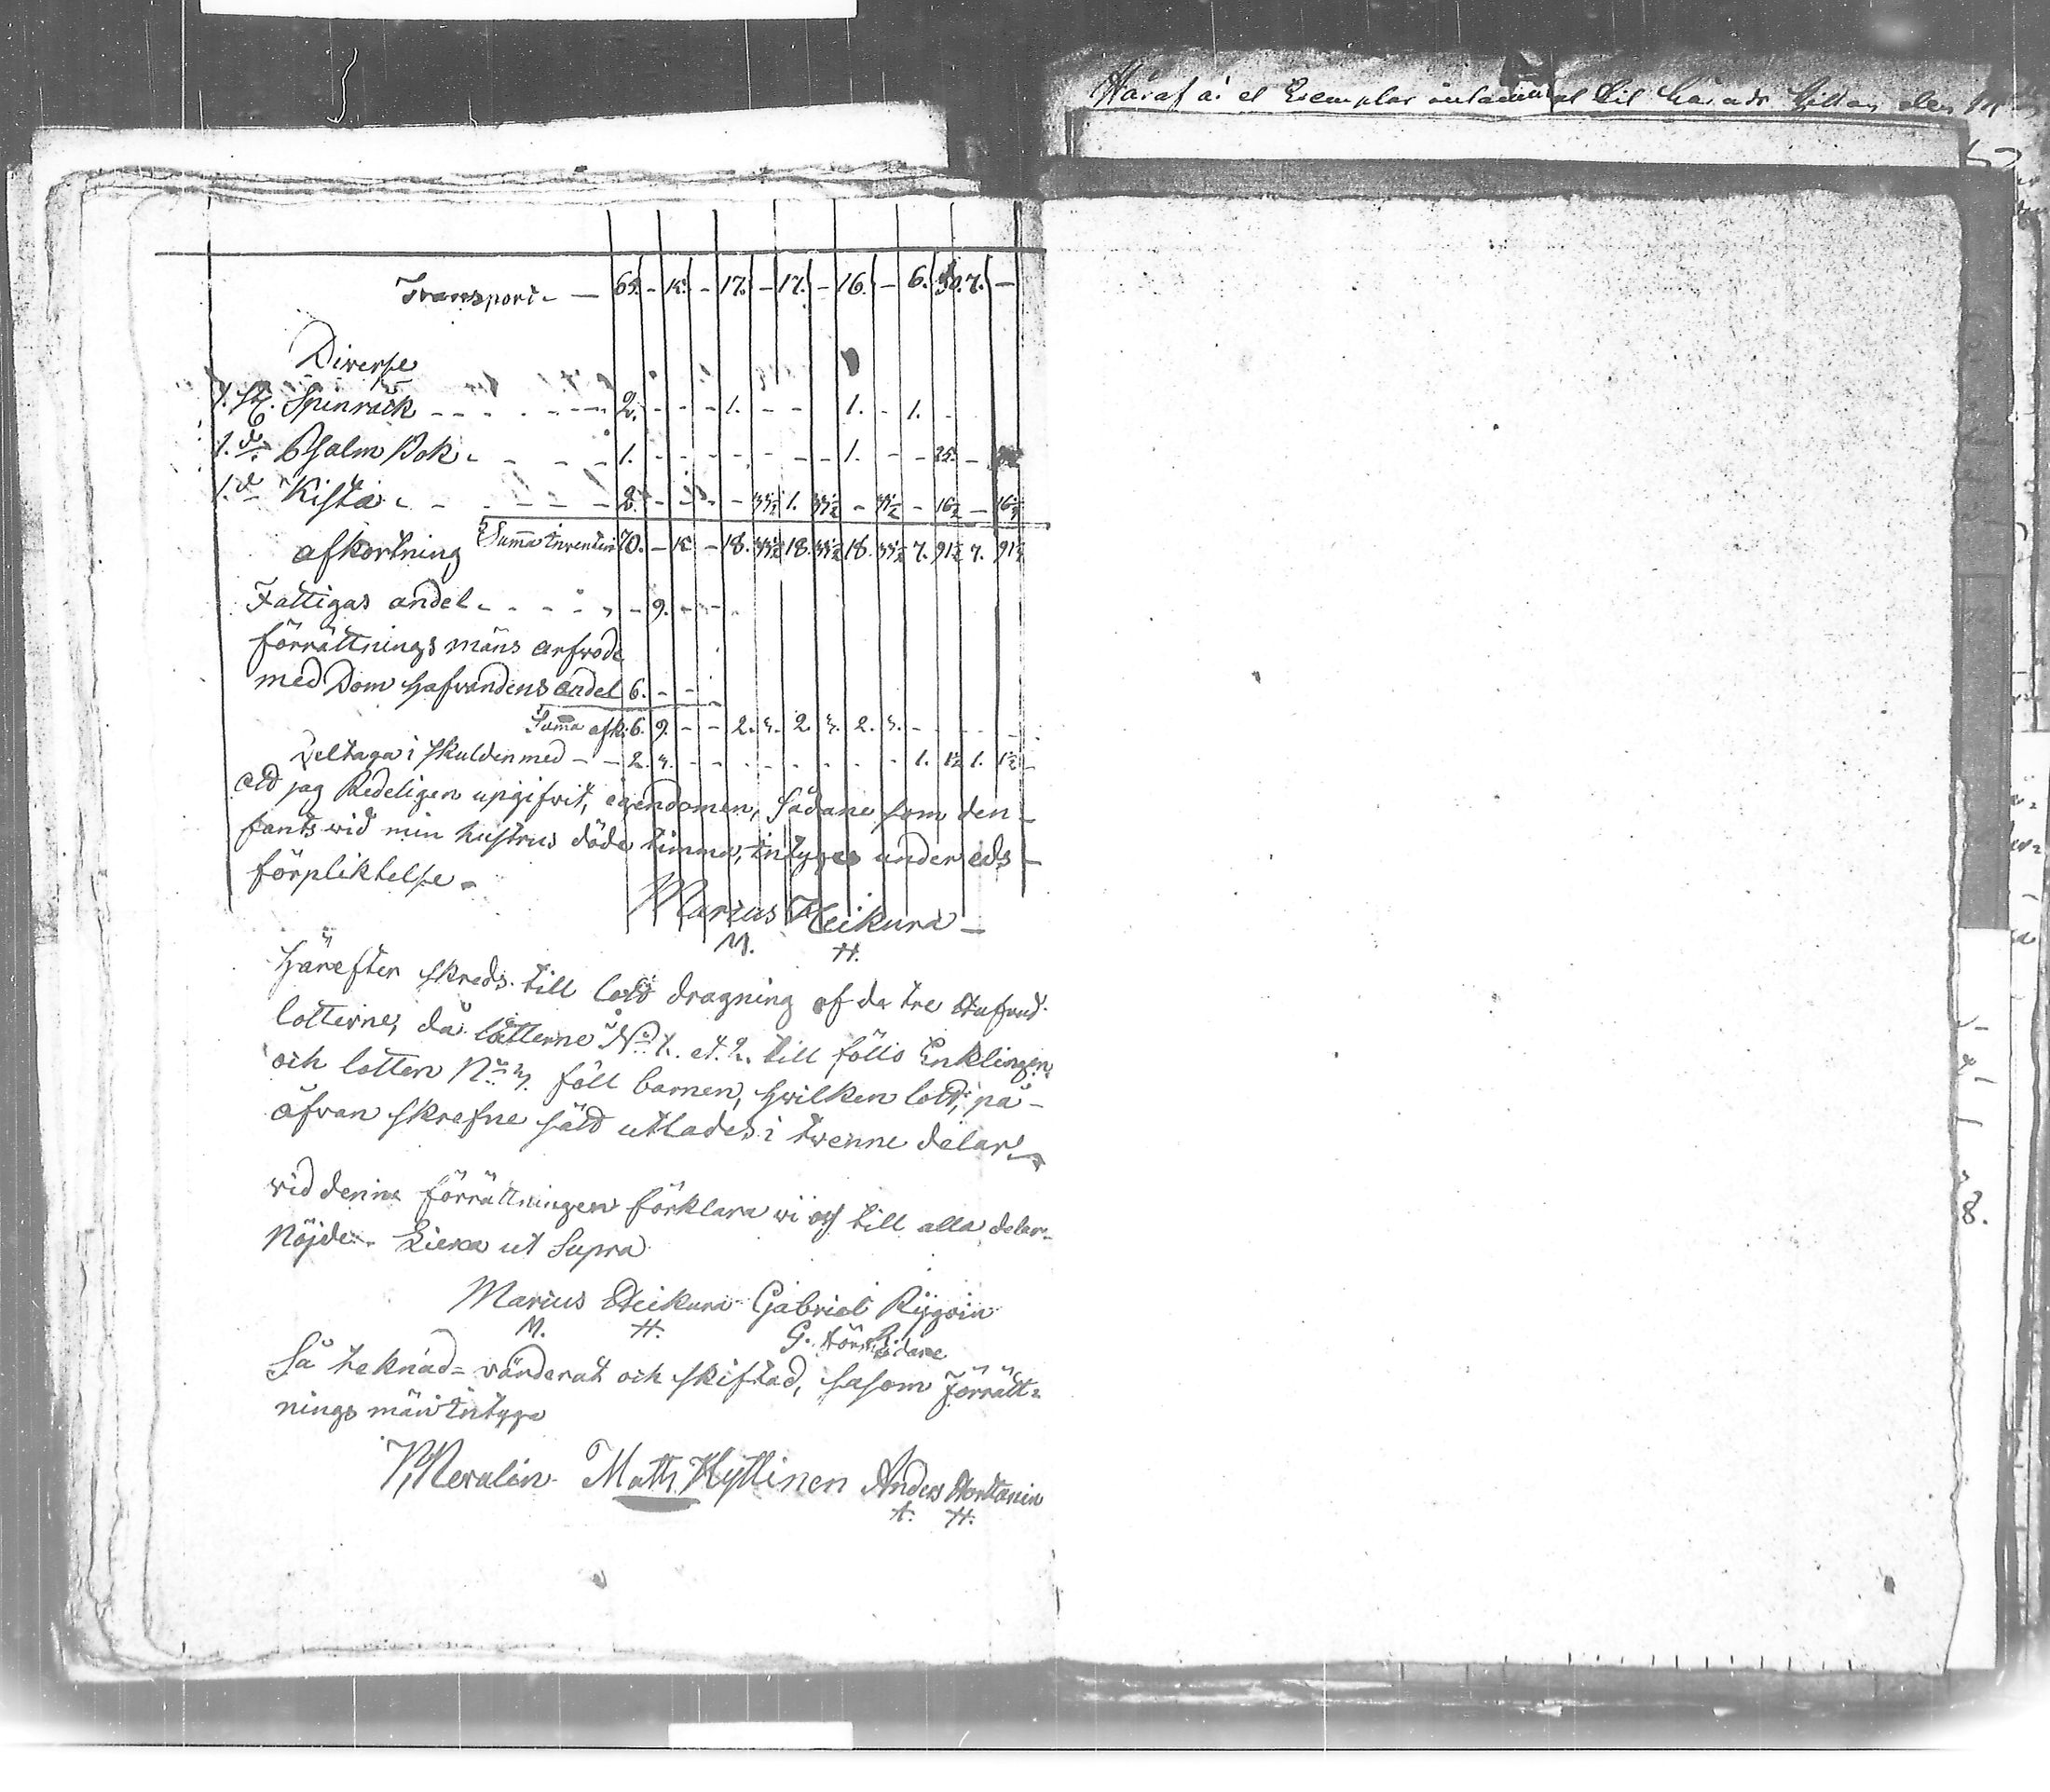 Häraf är et Exemplar inlämnat til Härads Rättan den
Transport — 65. - 15. - 17. - 17. - 16. - 6. 50. 7. —
Diverse
1. st. Spinråck - - - - - - 2. - - - 1. - - 1. - 1. -
1. do Psalm Bok - - - - 1. - - - - - - - 1. - - 25. -
1. do Kista - - - - - - 2. - - - - 33½ 1. 33½ - 33½ - 16½ - 16½
afkortning Summa Inventari 70. - 15 - 18. 33½ 18. 33½ 18. 33½ 7. 91½ 7. 91½
Fattigas andel - - - - - - 9. - -
förrättnings mäns arfvode
med Dom hafvandens andel 6. - -
Suma afk: 6. 9. - - 2. 3. 2. 3. 2. 3. -
Deltaga i skulden med - - 2. 3. - - - - - - - - 1. 1½ 1. 1½
Att jag Redeligen upgifvit, egendomen, sådane som den
fants vid min hustrus döde timma, intyges under eds
förpliktelse.
Marius Heikura
M. H.
Härefter skreds till lått dragning af de tre
lotterne, då låtterne No 1. et. 2. till föllo Enklingen
och lotten No 3. föll barnen, hvilken lott, på
åfvan skrefne sätt utlades i tvenne delar
vid denna förrättningen förklara vi oss till alla delar
Nöjde. Lieka ut Supra
Marius Heikura Gabriel Rygöin
M. H. G.
Så teknad- värderat och skiftad, såsom Förrätt=
nings män intyga
P. Neralin Matts Kyllinen Anders Hortanin
A. H.
8.